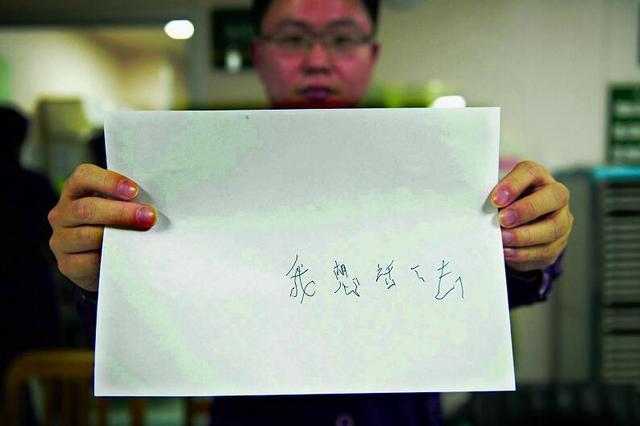 我想活下去